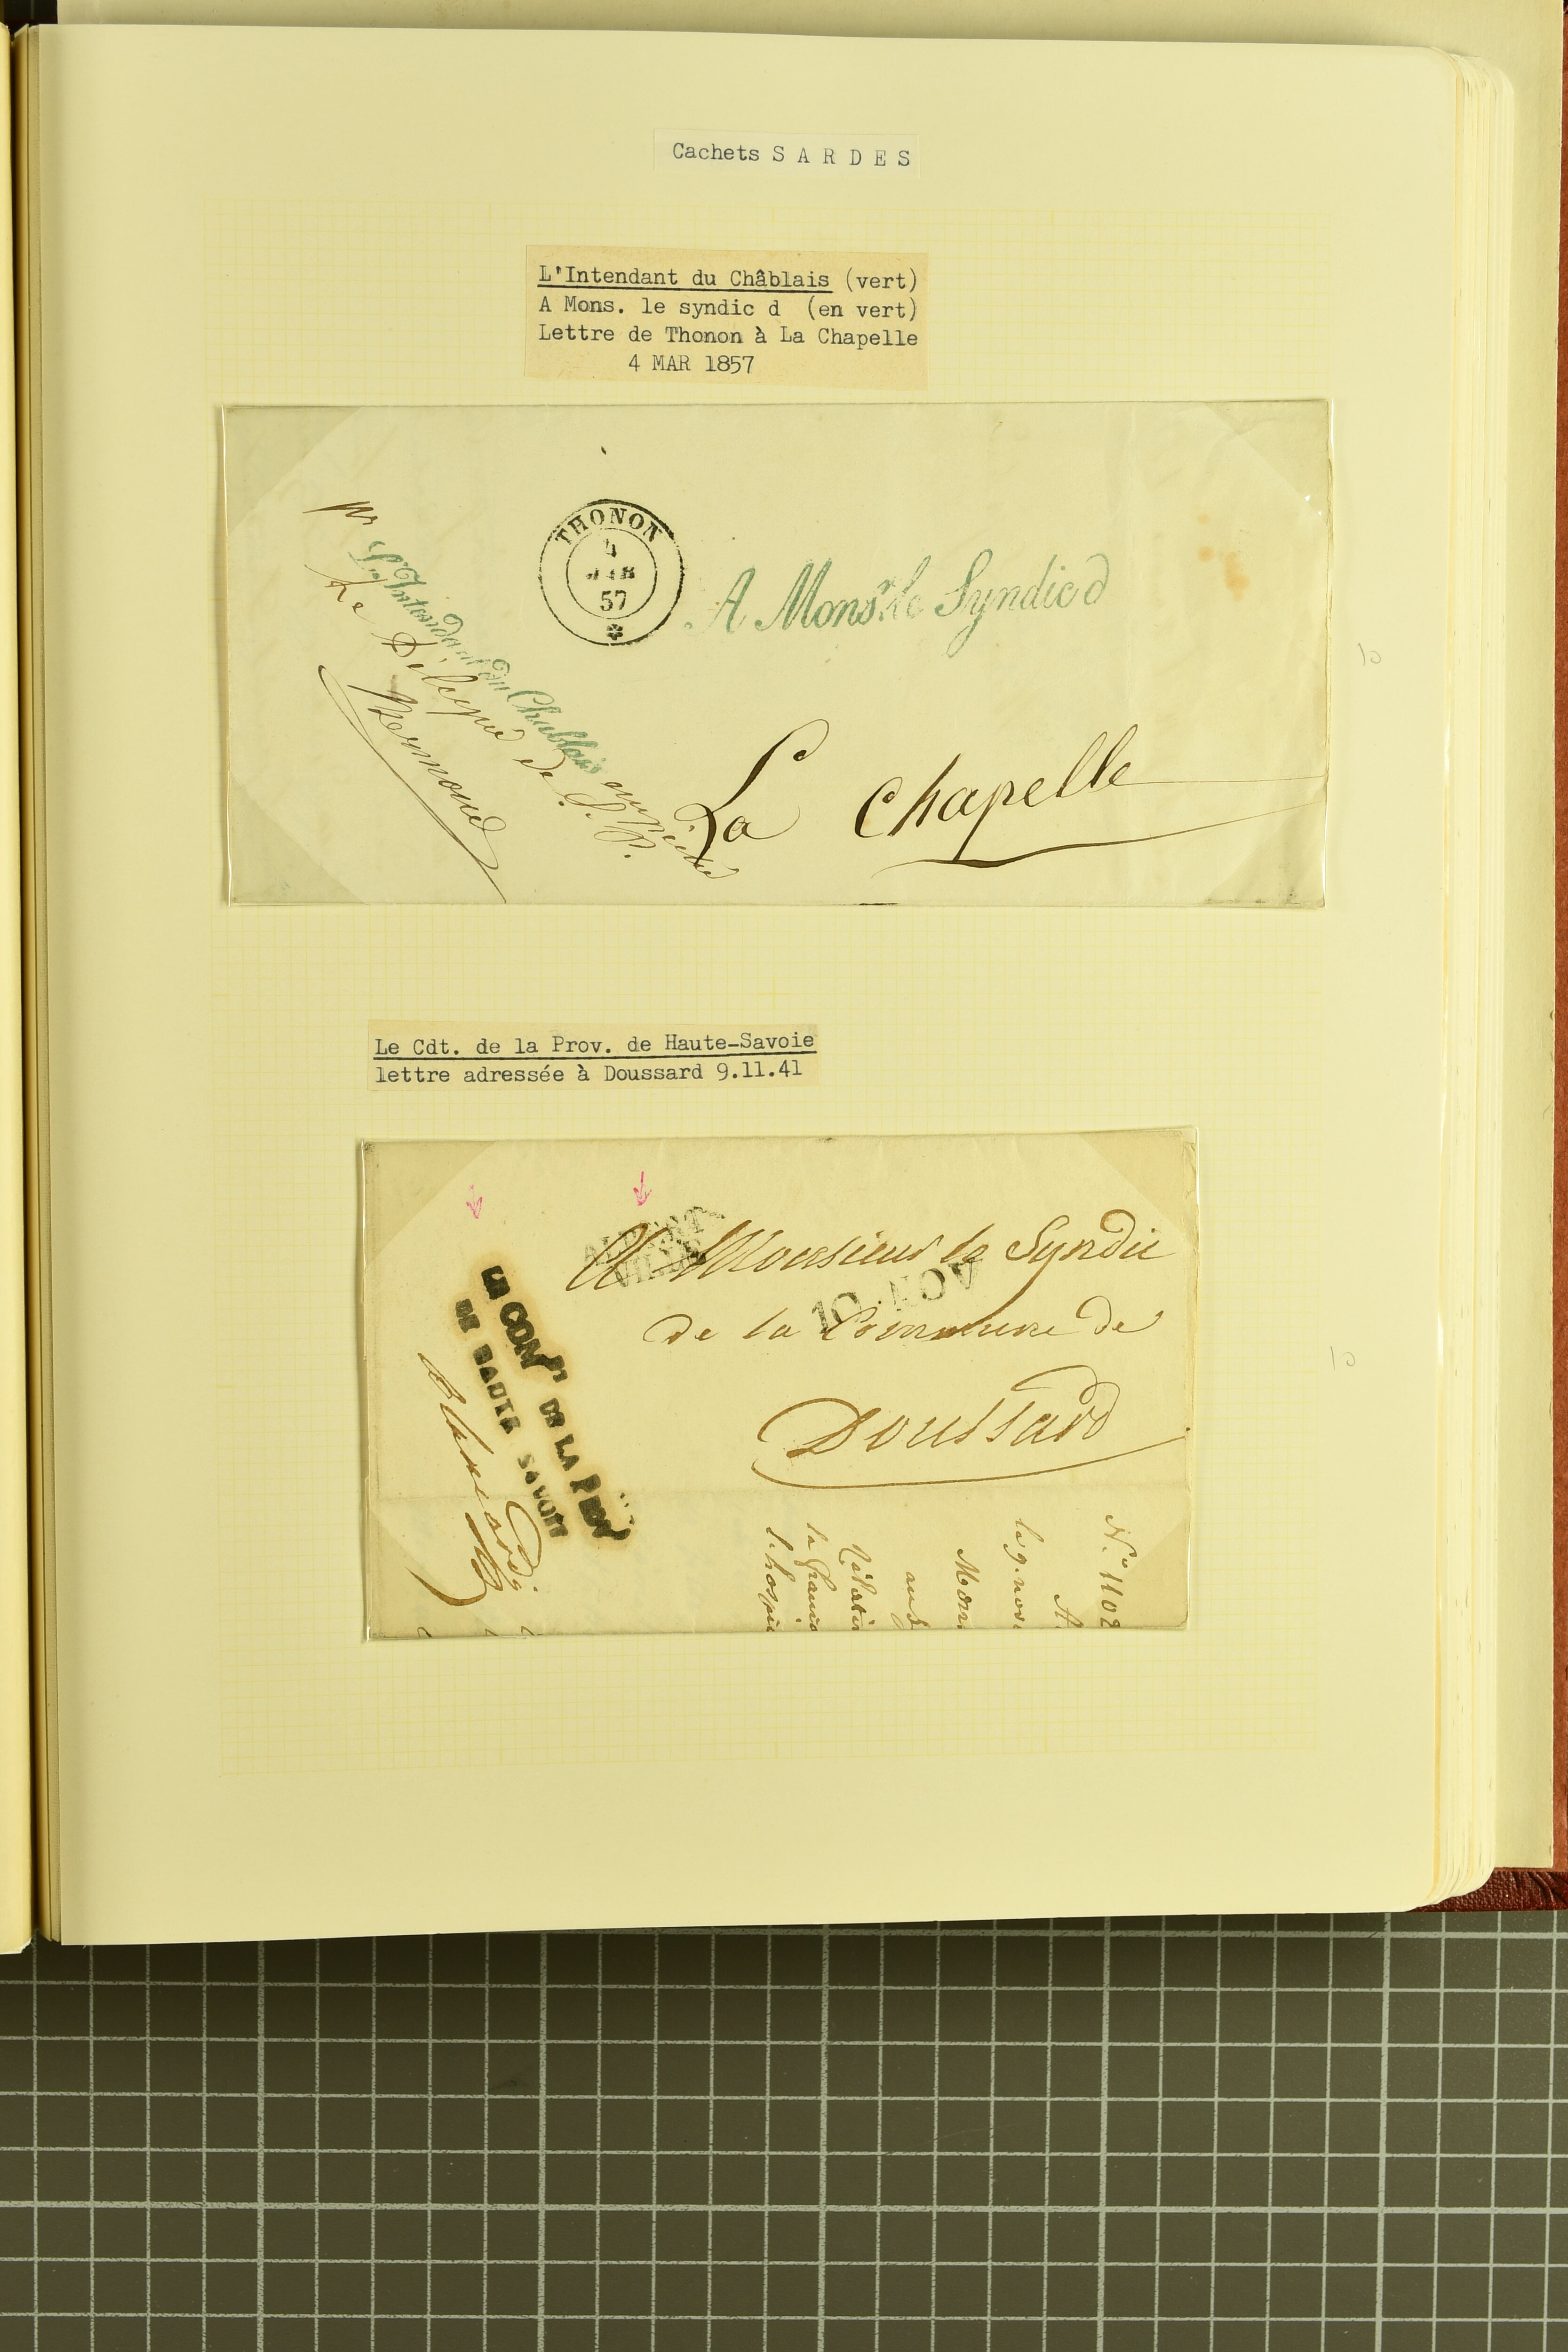 Cachets S A R D E S
L'Intendant du Châblais (vert)
A Mons. le syndic d (en vert)
Lettre de Thonon à La Chapelle
4 MAR 1857
THONON
4
MAR
57
A Mons.r le Syndic d
pr
L'Intendant du Chablais
Le Délégué de S. P.
Bermond
La Chapelle
10
Le Cdt. de la Prov. de Haute-Savoie
lettre adressée à Doussard 9.11.41
ALBERT-
VILLE
A Monsieur le Syndic
10 NOV
de la Commune de
Doussard
LE COMT DE LA PROV
DE HAUTE SAVOIE
10
N.° 1102
A
le 9. nov
Mon
aud
l'hospi